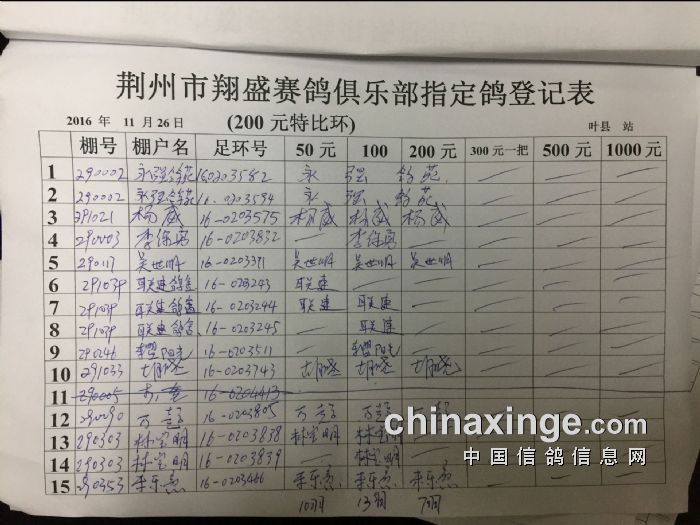 荆州市翔盛赛鸽俱乐部指定鸽登记表
2016 年 11 月 26 日 (200 元特比环) 叶县 站
棚号 棚户名 足环号 50 元 100 200 元 300 元一把 500 元 1000 元
1 290002 永强鸽苑 16-0203582 永 强 鸽苑
2 290002 永强鸽苑 16-0203594 永 强 鸽苑
3 291021 杨威 16-0203575 杨威 杨威 杨威
4 290003 16-0203832
5 290117 吴世明 16-0203391 吴世明 吴世明 吴世明
6 291039 联建鸽舍 16-0203243 联建
7 291039 联建鸽舍 16-0203244 联建 联建
8 291039 联建鸽舍 16-0203245 联建
9 290246 16-0203511
10 291033 胡晓 16-0203743 胡晓 胡晓 胡晓
11 290005 16-0204413
12 290090 万 16-0203805 万 万
13 290303 林宝明 16-0203838 林宝明 林宝明
14 290303 林宝明 16-0203839 林宝明
15 290353 16-0203466
10羽 13羽 7羽
chinaxinge.com
中国信鸽信息网